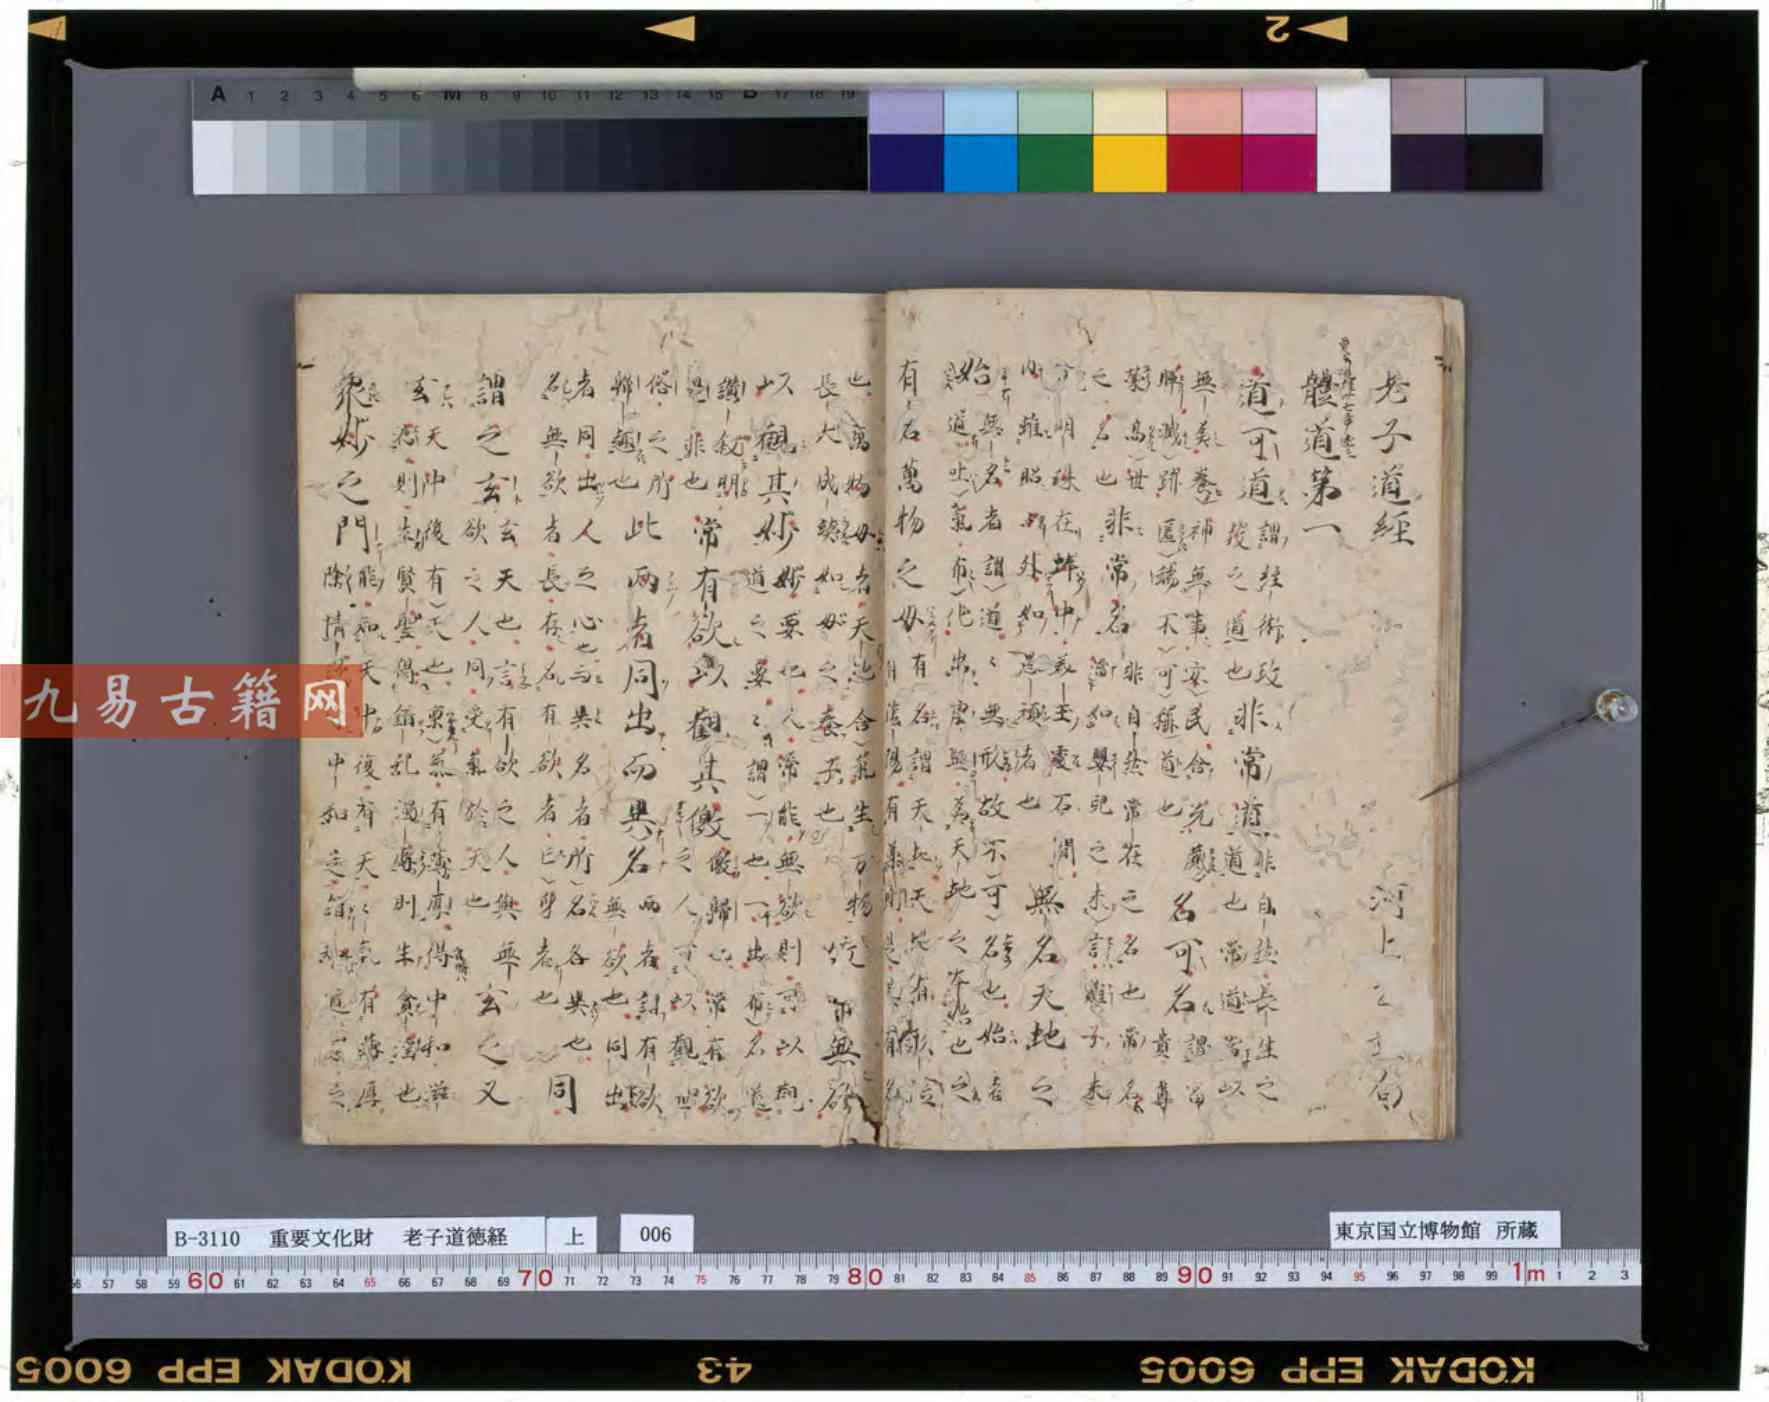 老子道經 河上公章句
體道第一
道可道 謂經術政教之道也 非常道 非自然長生之道也常道當以
無美養補無事安民含光藏暉滅跡匿端不可稱道也 名可名 謂富貴尊
榮高世之名也 非常名 非自然常在之名也常名當如嬰兒之未言雞子未
分明珠在蚌中美玉處石間內雖昭昭外如愚頑者也 無名天地之
始 無名者謂道道無形故不可名也始者道道吐氣布化出虛無為天地之本始也之
有名萬物之母 有名謂天地天地有形位有陰陽有柔剛是其有名
也萬物母者天地含氣生万物長大成熟如母之養子也 常無欲
以觀其妙 妙要也人常能無欲則可以觀道之要要謂一也一出布名道
讚敘明是非也 常有欲以觀其儌 儌歸也常有欲之人可以觀世
俗之所歸趣也 此兩者同出而異名 兩者謂有欲無欲也同出
者同出人之心也而異名者所名各異也名無欲者長存名有欲者亡身者也 同
謂之玄 玄天也言有欲之人與無欲之人同受氣於天也 玄之又
玄 天中復有天也稟氣有薄厚得中和滋液則生賢聖得錯亂濁辱則生貪淫也
衆妙之門 能知天中復有天天氣有薄厚除情欲守中和是謂知道要之
九易古籍网
B-3110 重要文化財 老子道徳経 上 006
東京国立博物館 所蔵
KODAK EPP 6005 43 KODAK EPP 6005